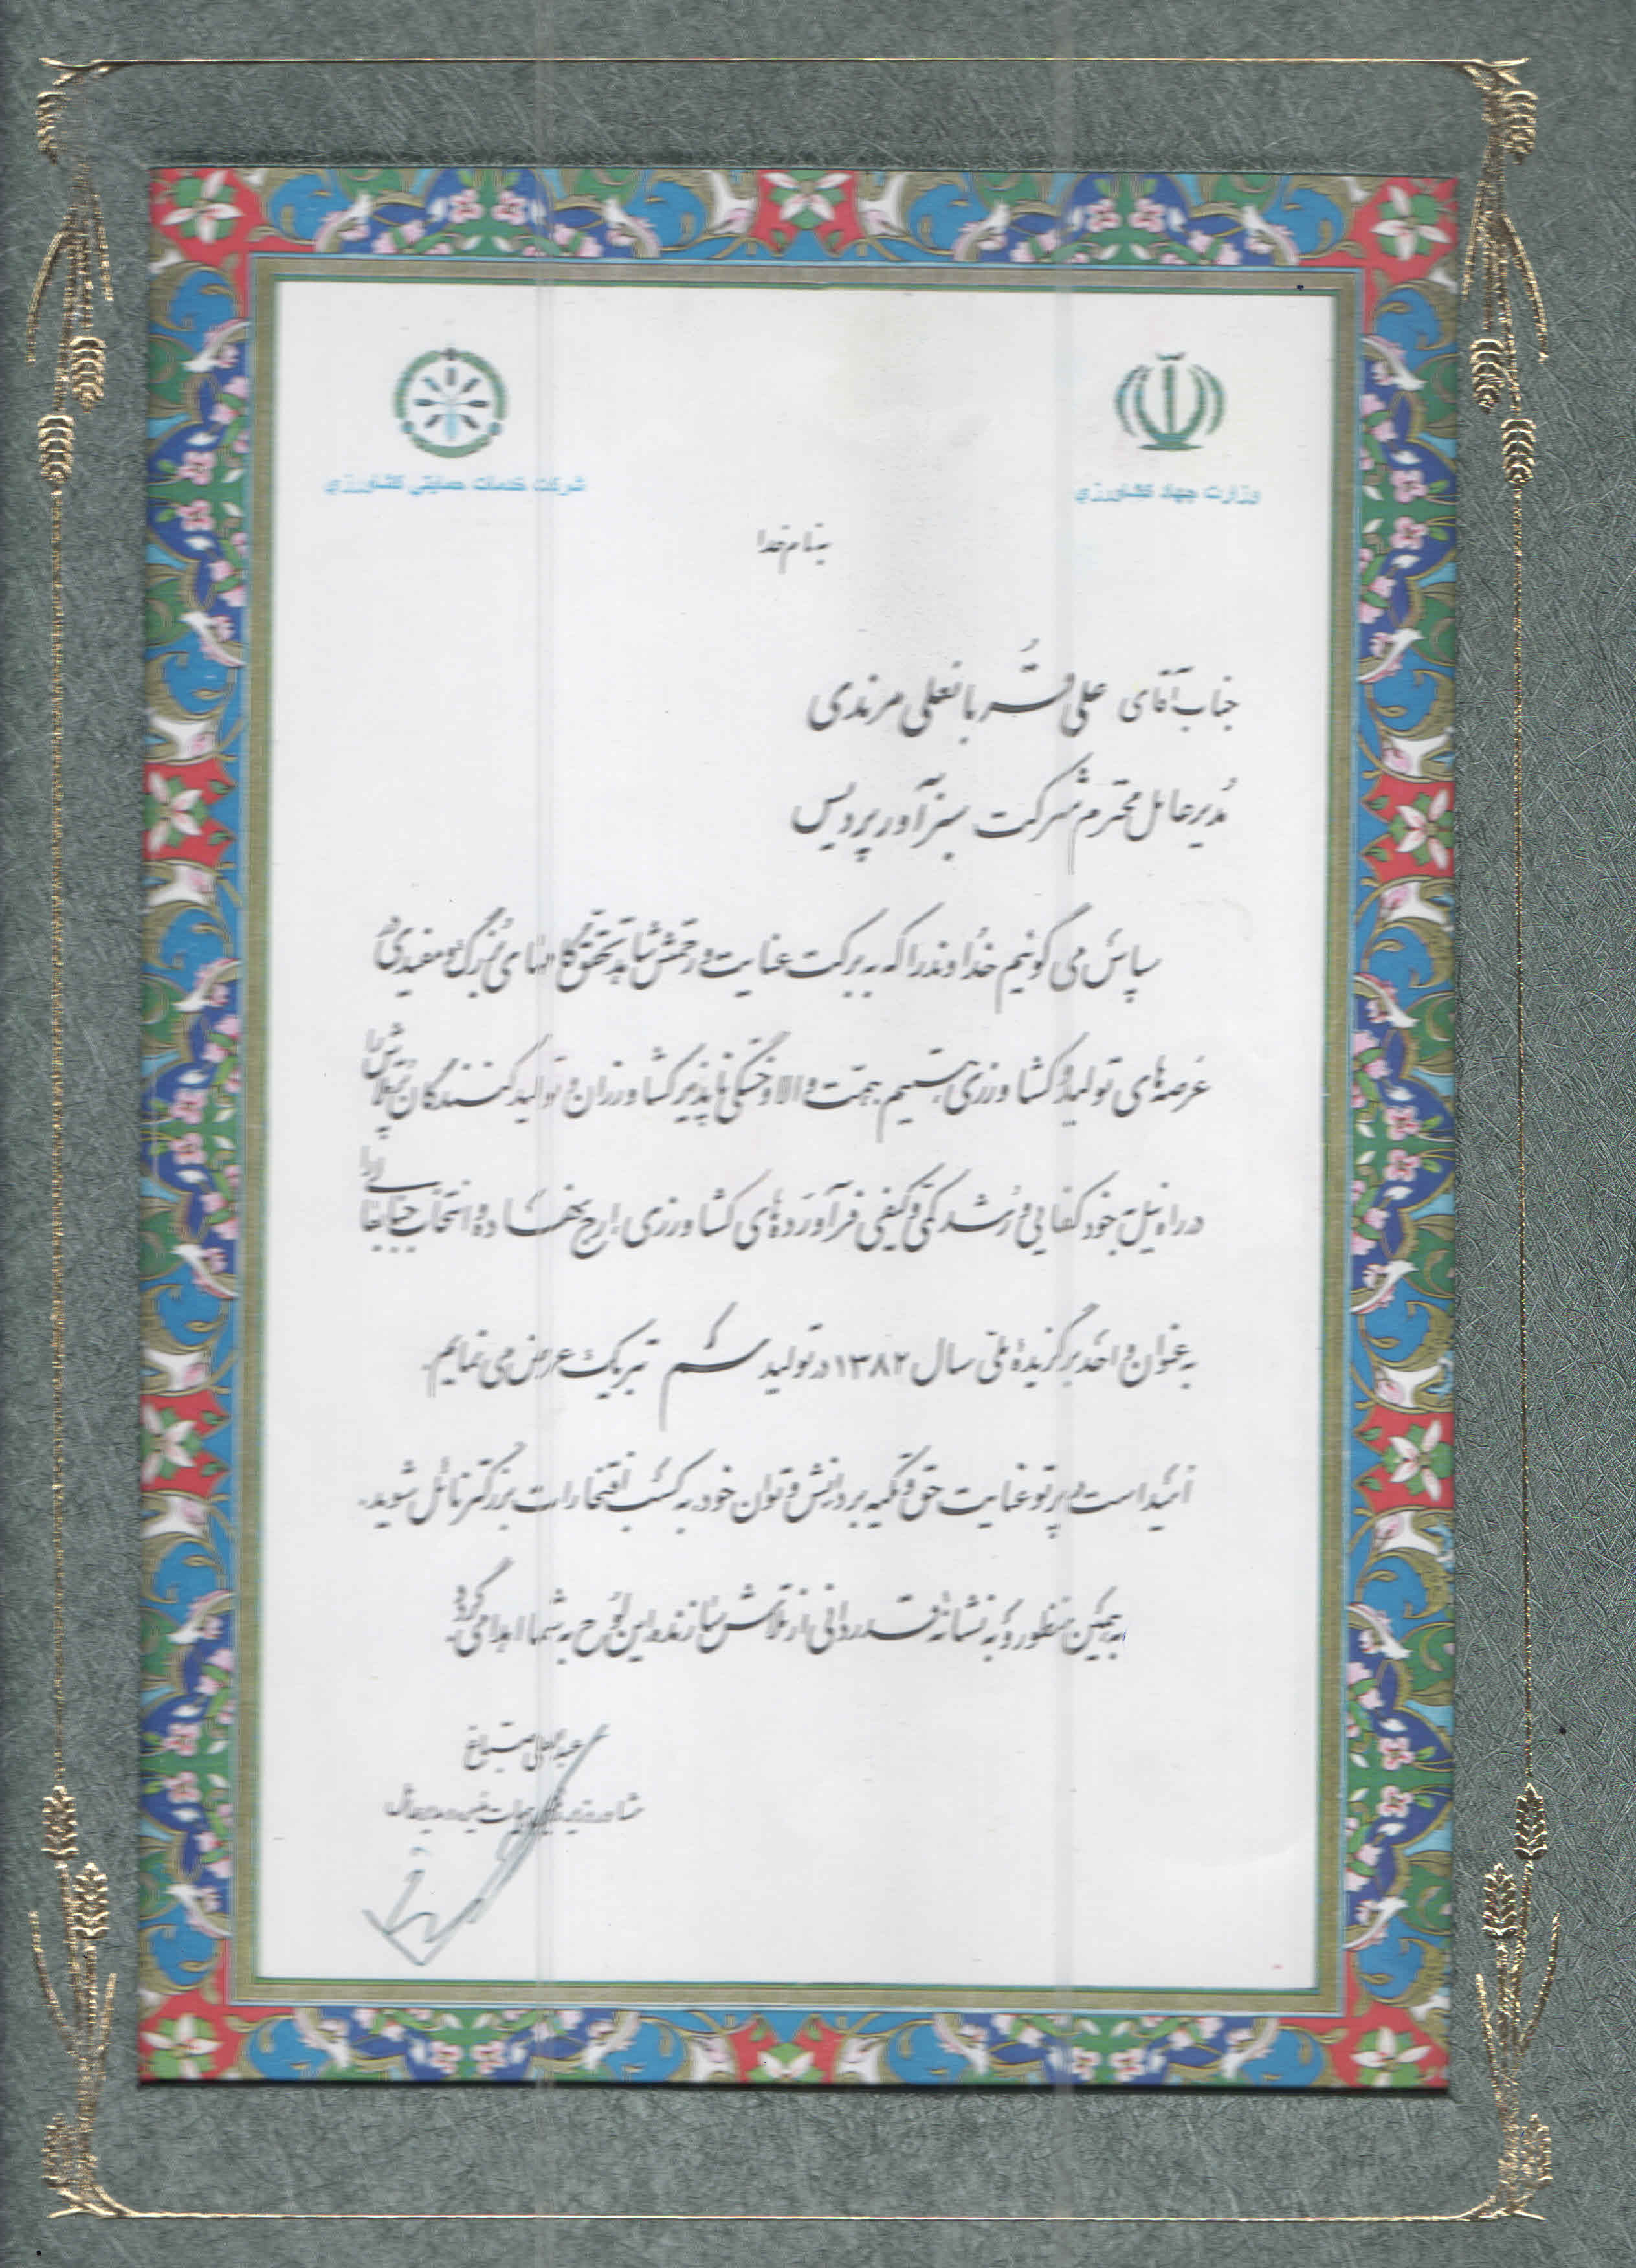 وزارت جهاد کشاورزی
شرکت خدمات حمایتی کشاورزی
بنام خدا
جناب آقای علی قربانعلی مرندی
مدیرعامل محترم شرکت سبزآور پردیس
سپاس می گوئیم خداوند را که به برکت عنایت و رحمتش شاهد تحقق گامهای بزرگ و مفیدی در
عرصه های تولید و کشاورزی هستیم همت والا و خستگی ناپذیر کشاورزان و تولید کنندگان پرتلاش را
در راه نیل به خودکفایی و رشد کمی و کیفی فرآورده های کشاورزی ارج نهاده و انتخاب جنابعالی را
به عنوان واحد برگزیده ملی سال ۱۳۸۲ در تولید سم تبریک عرض می نمایم.
امید است در پرتو عنایت حق و تکیه بر دانش و توان خود به کسب افتخارات بزرگتر نائل شوید.
به همین منظور و به نشانه قدردانی از تلاش سازنده این لوح به شما اهدا می گردد.
مشاور وزیر رئیس هیات مدیره و مدیرعامل